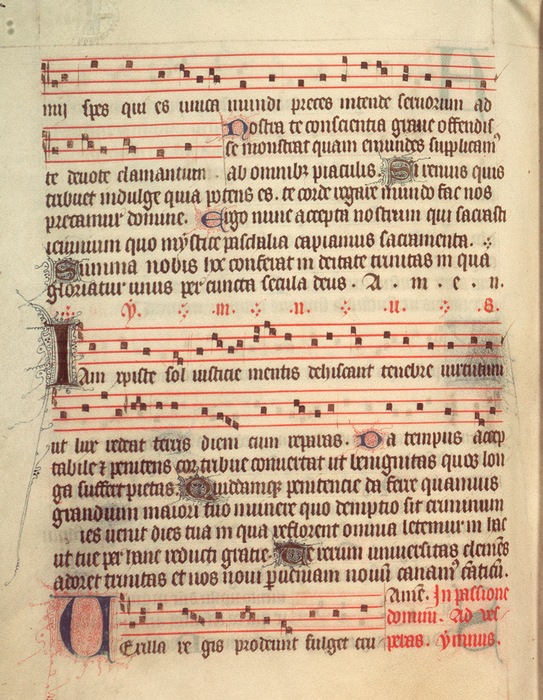 mij spes qui es unica mundi preces intende servorum ad
Nostra te conscientia grave offendis
se monstrat quam emundes supplicam᾽
te devote clamantium . ab omnibꝫ piaculis. Si renuis quis
tribuet indulge quia potens es. te corde rogare mundo fac nos
precamur domine. Ergo nunc accepta nostrum qui sacrasti
ieiunium quo mystice paschalia capiamus sacramenta.
Summa nobis hec conferat in deitate trinitas in qua
gloriatur unus per cuncta secula deus . A . m . e . n.
y. m. n. u. s.
Iam xpiste sol iusticie mentis dehiscant tenebre virtutum
ut lux redeat terris diem cum reparas. Da tempus accep
tabile ⁊ penitens cor tribue convertat ut benignitas quos lon
ga suffert pietas. Quiddamqꝫ penitencie da ferre quamvis
grandium maiori tuo munere quo demptio fit criminum
ies venit dies tua in qua reflorent omnia letemur in hac
ut tue per hanc reducti gratie. Te rerum universitas clemēs
adoret trinitas et nos novi p veniam novū canam᾽ cāticū.
Amē. In passione
domini. Ad ves
Vexilla re gis prodeunt fulget cru peras. ymnus.